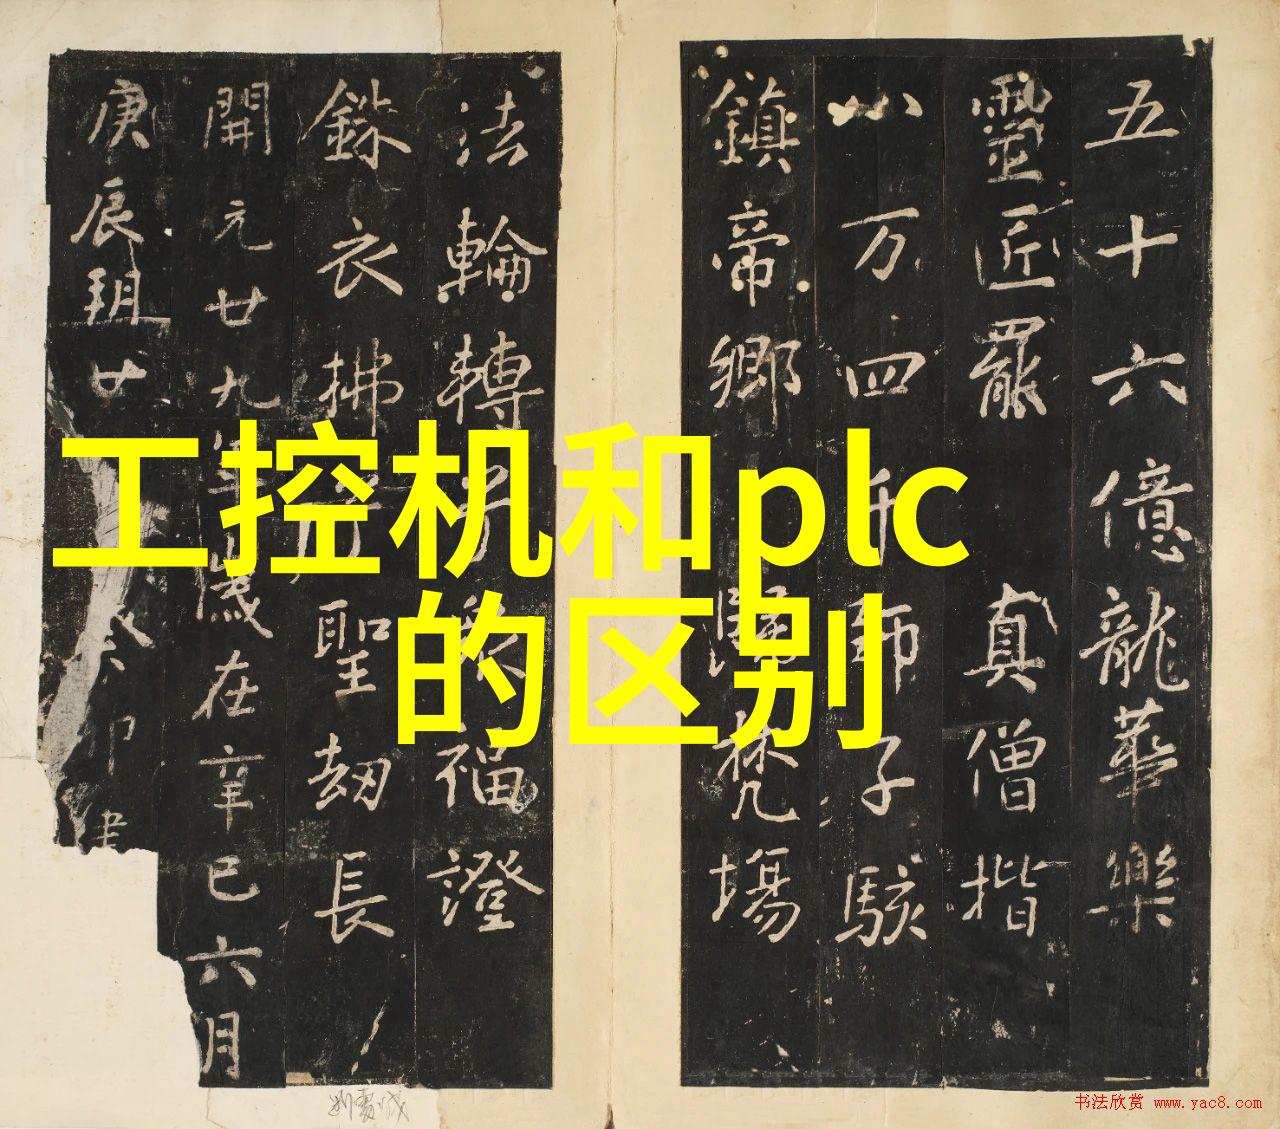 五十六億龍華樂
靈匠罷 真僧揩
八万四千師子駭
鎮帝鄉 歸梵場
法輪轉 福證
銖衣拂 聖劫長
開元廿九年歲在辛巳六月
庚辰朔廿 癸卯建
工控机和plc
的区别
书法欣赏 www.yac8.com